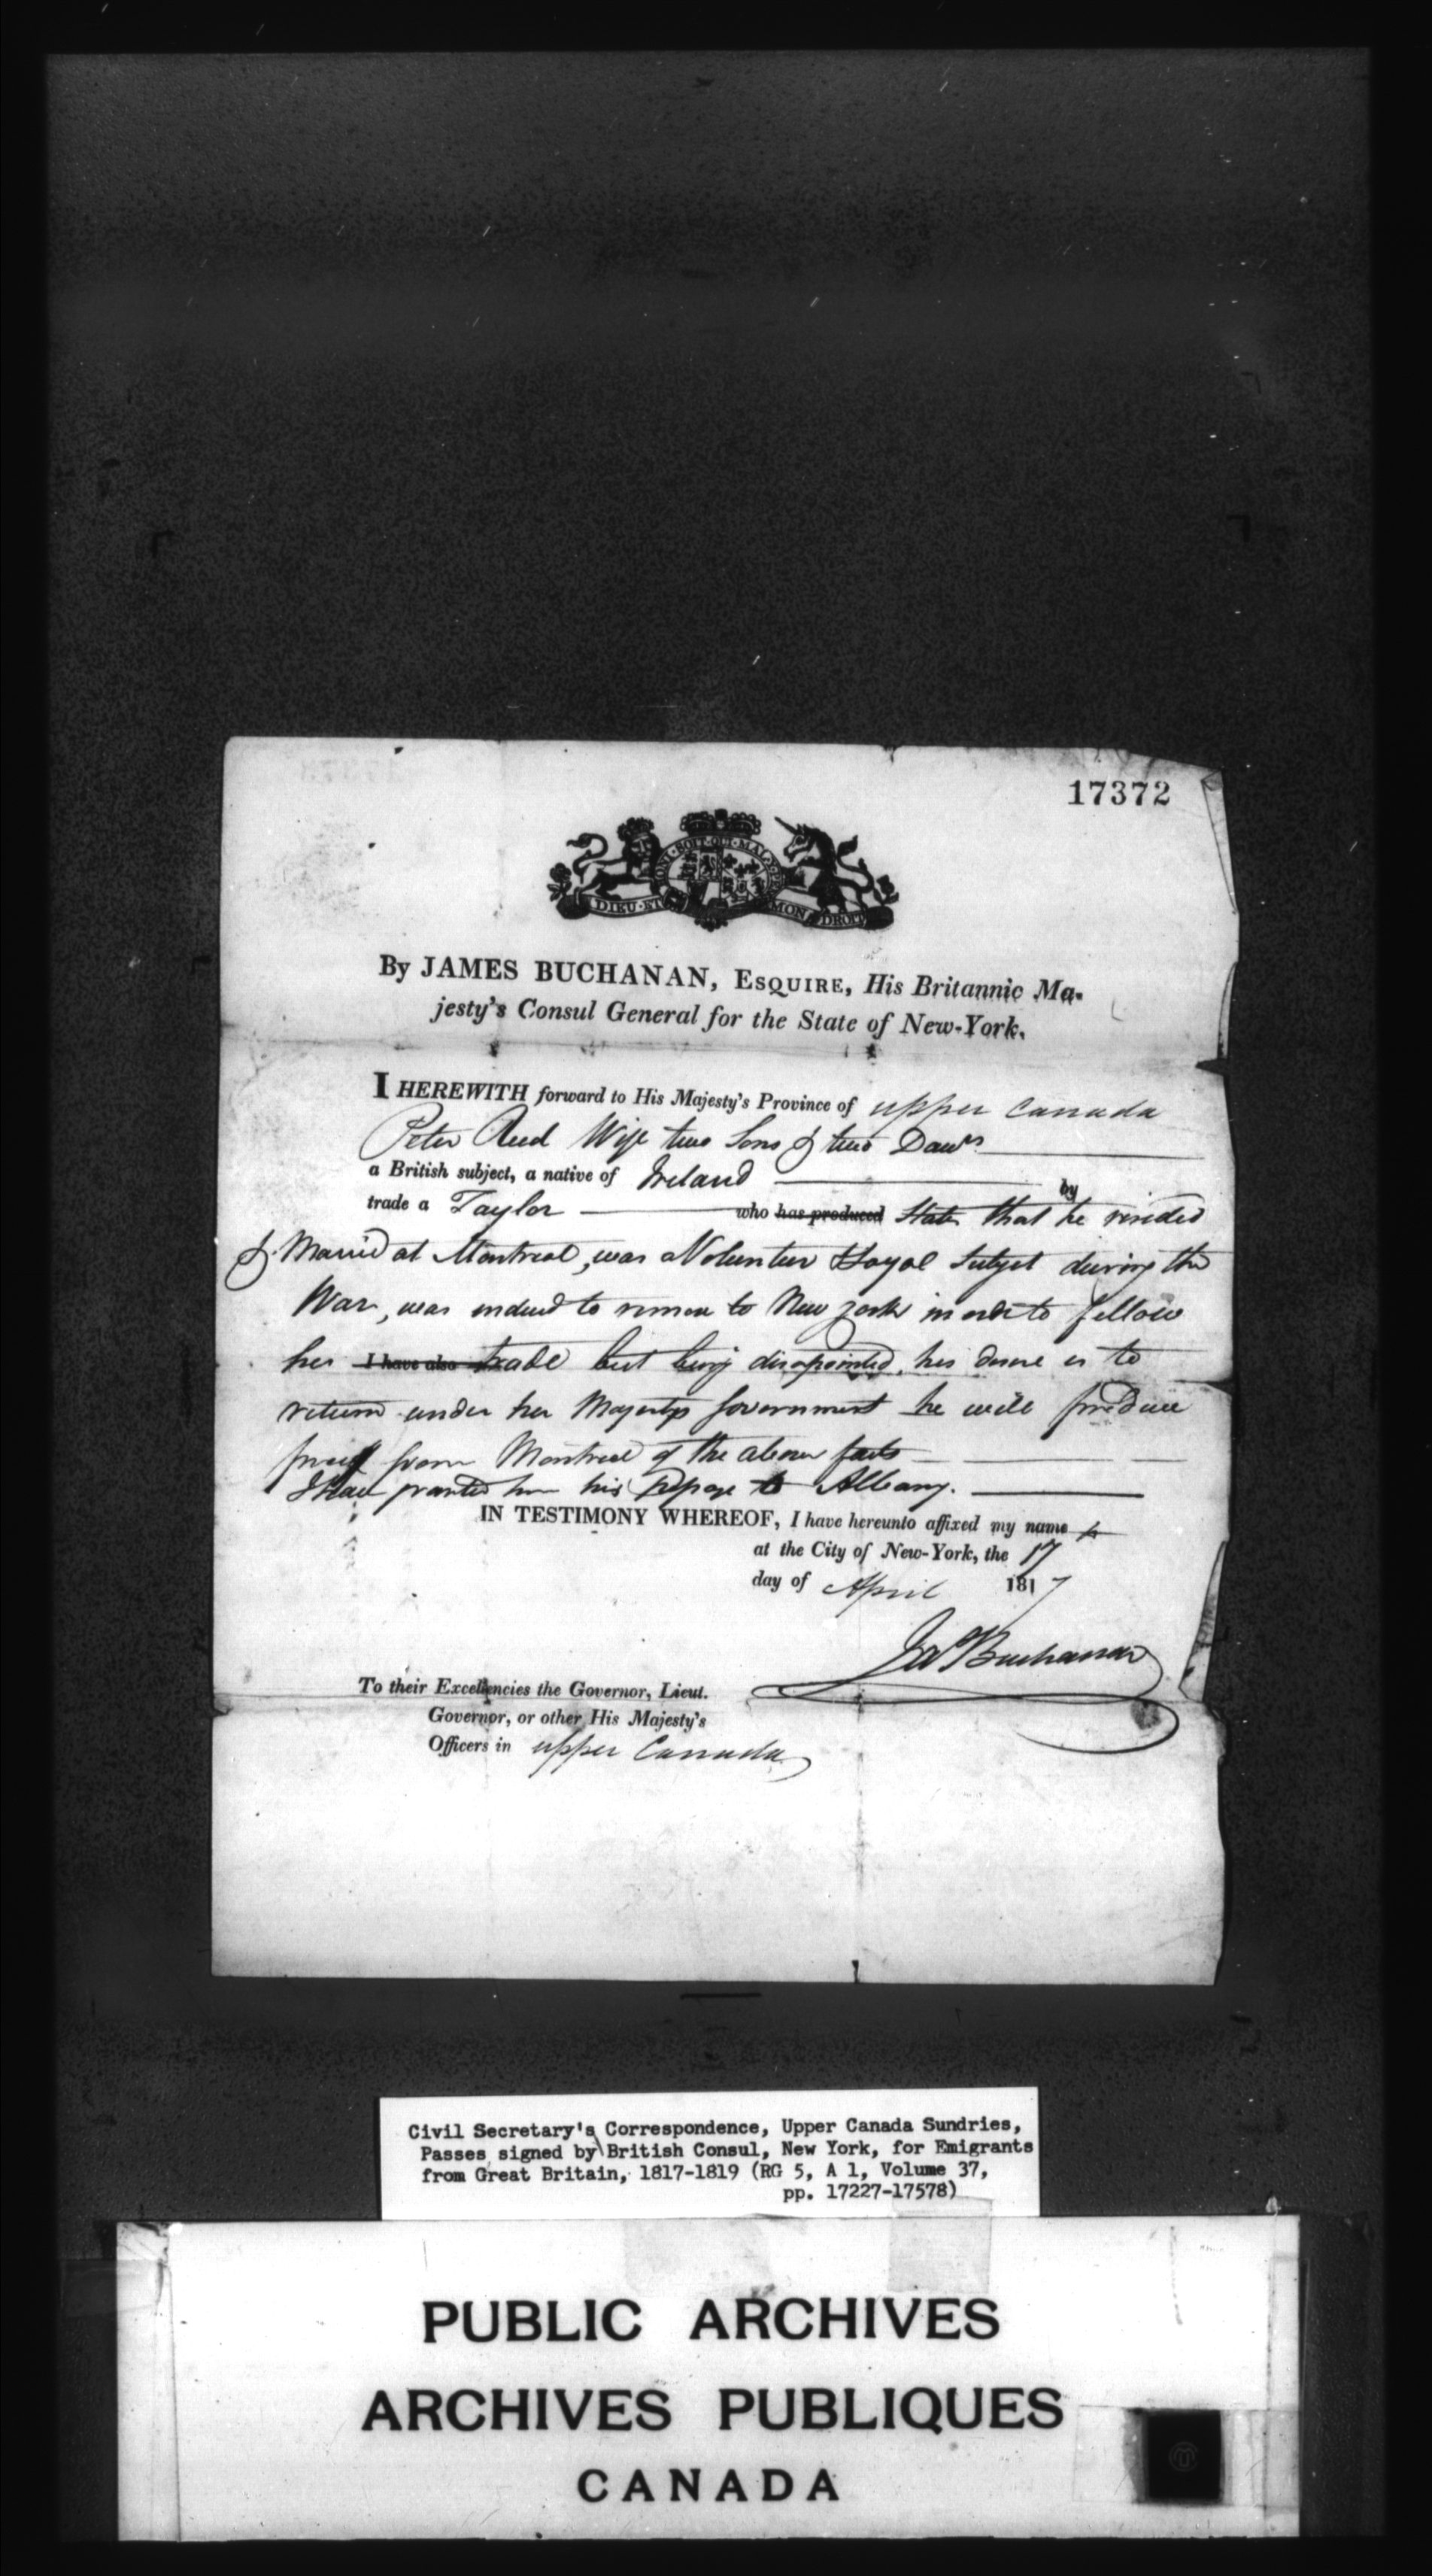 17372
HONI·SOIT·QUI·MAL·Y
DIEU·ET MON DROIT
By JAMES BUCHANAN, ESQUIRE, His Britannic Ma-
jesty's Consul General for the State of New-York.
I HEREWITH forward to His Majesty's Province of upper Canada
Peter Reed Wife two Sons & two Dawrs
a British subject, a native of Ireland by
trade a Taylor who has produced States that he resided
& Married at Montreal, was a Volunteer Loyal Subject during the
War, was induced to remove to New york in order to follow
his I have also trade but being disapointed, his desire is to
return under his Majestys Government he will produce
proof from Montreal of the above facts
I have granted him his passage to Albany.
IN TESTIMONY WHEREOF, I have hereunto affixed my name
at the City of New-York, the 17
day of April 1817
Jas Buchanan
To their Excellencies the Governor, Lieut.
Governor, or other His Majesty's
Officers in upper Canada
Civil Secretary's Correspondence, Upper Canada Sundries,
Passes signed by British Consul, New York, for Emigrants
from Great Britain, 1817-1819 (RG 5, A 1, Volume 37,
pp. 17227-17578)
PUBLIC ARCHIVES
ARCHIVES PUBLIQUES
CANADA